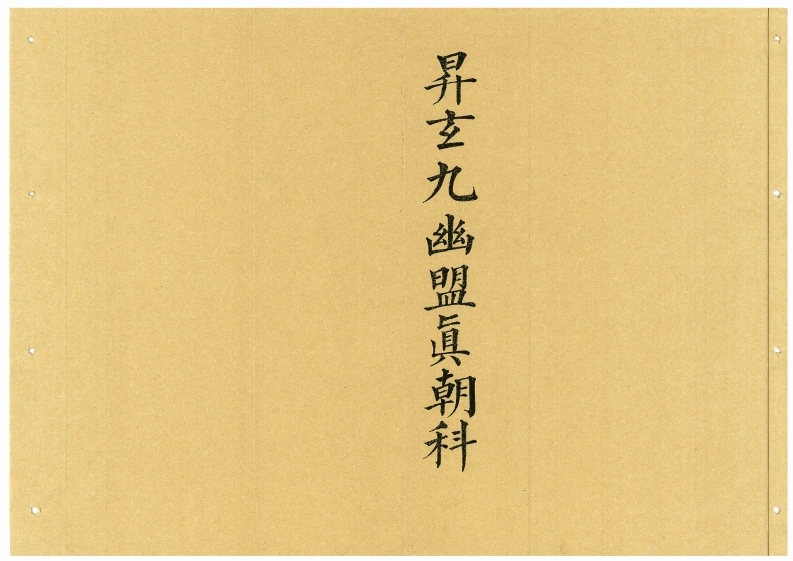 昇玄九幽盟眞朝科